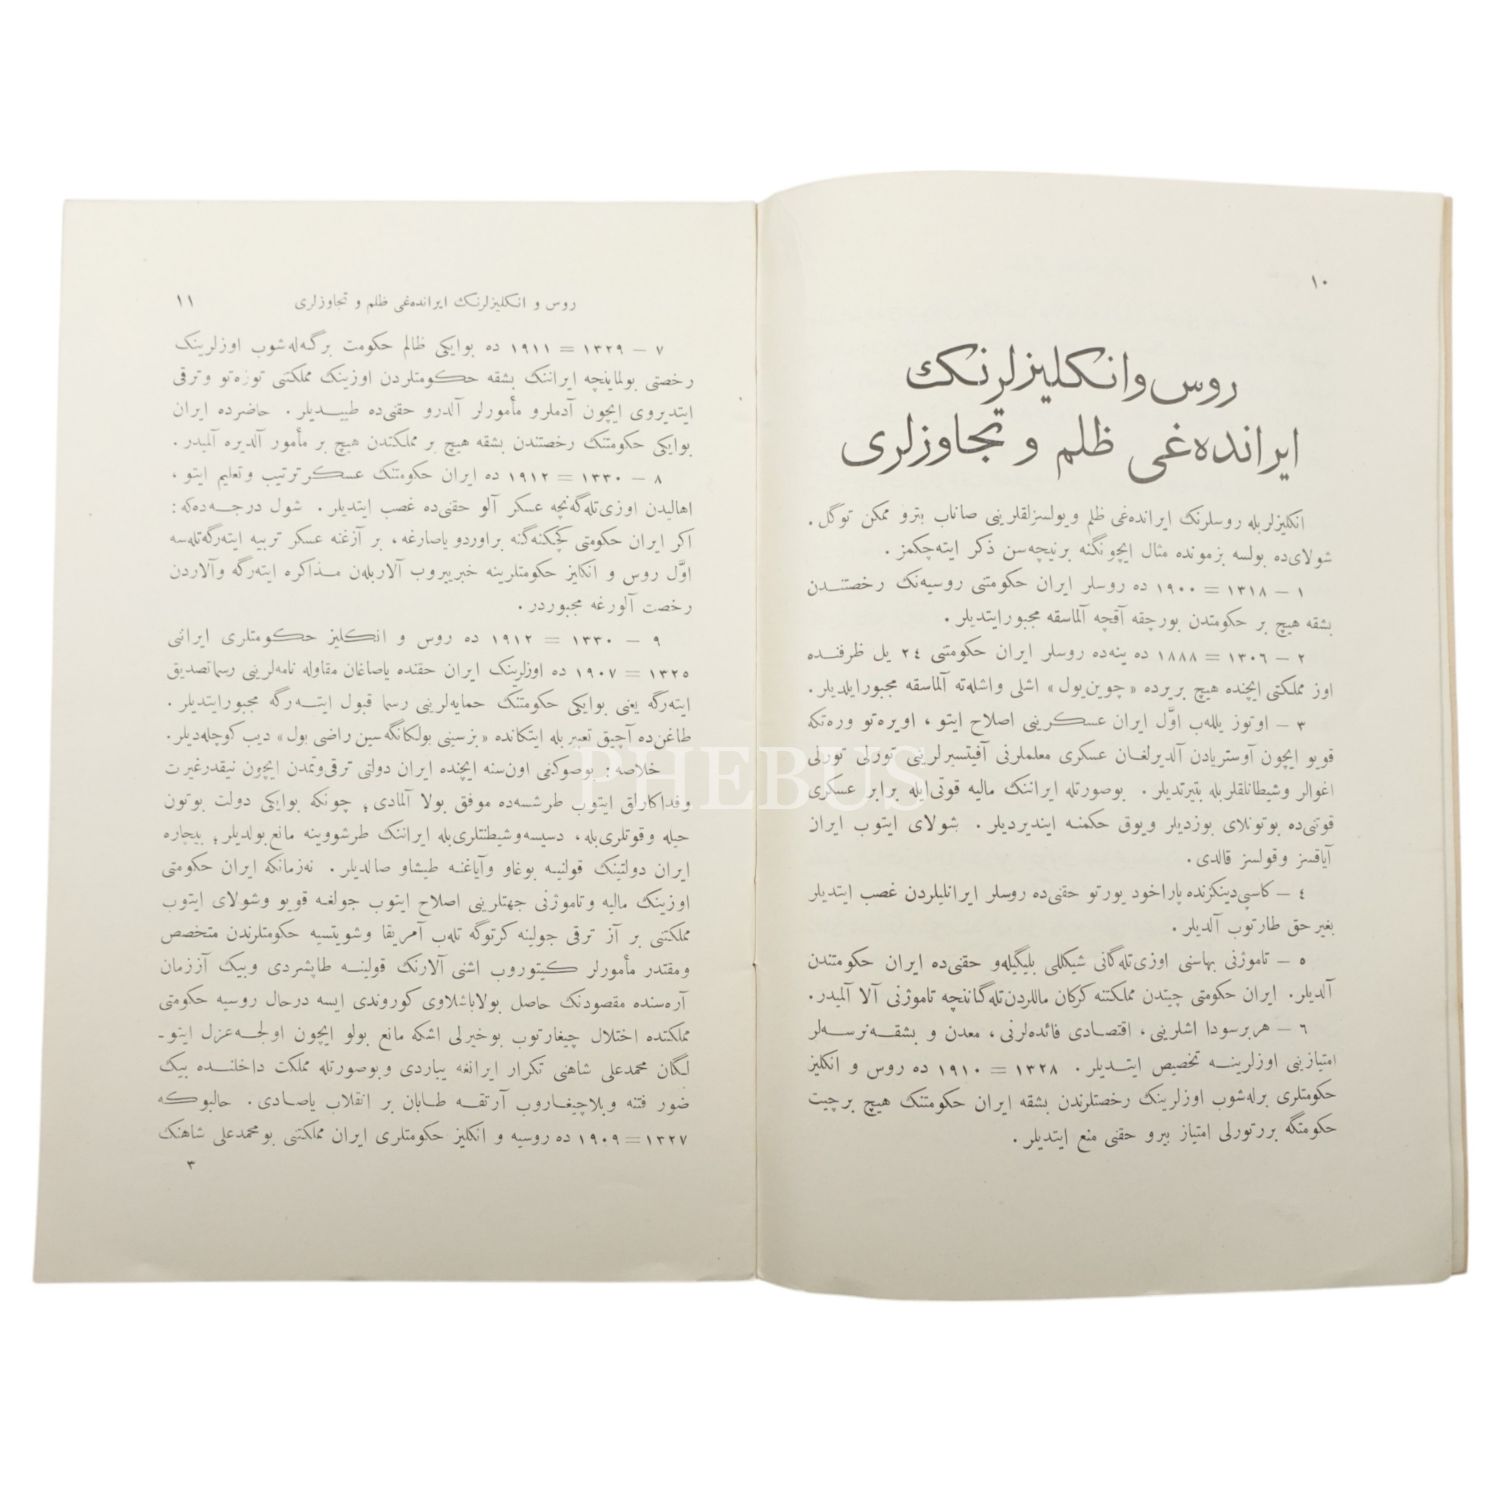 ١٠
روس وانكليزلرنك
ايرانده‌غى ظلم و تجاوزلرى
انكليزلربله روسلرنك ايرانده‌غى ظلم ويولسزلقلرينى صاناب بترو ممكن توگل .
شولاى‌ده بولسه بزمونده مثال ايچونگنه برنيچه‌سن ذكر ايته‌چكمز .
١ – ١٣١٨ = ١٩٠٠ ده روسلر ايران حكومتنى روسيه‌نك رخصتندن
بشقه هيچ بر حكومتدن بورچقه آقچه آلماسقه مجبورايتديلر .
٢ – ١٣٠٦ = ١٨٨٨ ده ينه‌ده روسلر ايران حكومتنى ٢٤ يل ظرفنده
اوز مملكتى ايچنده هيچ بريرده « چوين‌يول » اشلى واشله‌ته آلماسقه مجبورايلديلر .
٣ – اوتوز يللەب اوّل ايران عسكرينى اصلاح ايتو ، اويره‌تو وره‌تكه
قويو ايچون آوستريادن آلديرلغان عسكرى معلملرنى آفيتسبرلرينى تورلى تورلى
اغوالر وشيطانلقلربله بتيرتديلر . بوصورتله ايراننك ماليه قوتى‌ايله برابر عسكرى
قوتنى‌ده بوتونلاى بوزديلر ويوق حكمنه اينديرديلر . شولاى ايتوب ايران
آياقسز وقولسز قالدى .
٤ – كاسپى‌دينكزنده پاراخود يورتو حقنى‌ده روسلر ايرانليلردن غصب ايتديلر
بغيرحق طارتوب آلديلر .
٥ – تاموژنى بهاسنى اوزى‌تله‌گانى شيكللى بليگيله‌و حقنى‌ده ايران حكومتندن
آلديلر . ايران حكومتى چيتدن مملكتنه كركان ماللردن‌تله‌گاننچه تاموژنى آلا آلميدر .
٦ – هربرسودا اشلرينى ، اقتصادى فائده‌لرنى ، معدن و بشقه‌نرسه‌لر
امتيازينى اوزلرينه تخصيص ايتديلر . ١٣٢٨ = ١٩١٠ ده روس و انكليز
حكومتلرى برله‌شوب اوزلرينك رخصتلرندن بشقه ايران حكومتنك هيچ برچيت
حكومتگه بررتورلى امتياز بيرو حقنى منع ايتديلر .
روس و انكليزلرنك ايرانده‌غى ظلم و تجاوزلرى ١١
٧ – ١٣٢٩ = ١٩١١ ده بوايكى ظالم حكومت برگه‌له‌شوب اوزلرينك
رخصتى بولماينچه ايراننك بشقه حكومتلردن اوزينك مملكتنى توزه‌تو وترقى
ايتديروى ايچون آدملرو مأمورلر آلدرو حقنى‌ده طييديلر . حاضرده ايران
بوايكى حكومتنك رخصتندن بشقه هيچ بر مملكتدن هيچ بر مأمور آلديره آلميدر .
٨ – ١٣٣٠ = ١٩١٢ ده ايران حكومتنك عسكرترتيب وتعليم ايتو ،
اهاليدن اوزى‌تله‌گه‌نچه عسكر آلو حقنى‌ده غصب ايتديلر . شول درجه‌ده‌كه :
اكر ايران حكومتى كچكنه‌گنه براوردو ياصارغه ، بر آزغنه عسكر تربيه ايته‌رگه‌تله‌سه
اوّل روس و انكليز حكومتلرينه خبربيروب آلاربله‌ن مذاكره ايته‌رگه وآلاردن
رخصت آلورغه مجبوردر .
٩ – ١٣٣٠ = ١٩١٢ ده روس و انكليز حكومتلرى ايراننى
١٣٢٥ = ١٩٠٧ ده اوزلرينك ايران حقنده ياصاغان مقاوله نامه‌لرينى رسماتصديق
ايته‌رگه يعنى بوايكى حكومتنك حمايه‌لرينى رسما قبول ايته‌رگه مجبورايتديلر .
طاغن‌ده آچيق تعبير بله ايتكانده « بزسينى بولكانگه‌سين راضى بول » ديب كوچله‌ديلر .
خلاصه : بوصوكغى اون‌سنه ايچنده ايران دولتى ترقى‌وتمدن ايچون نيقدرغيرت
وفداكارلق ايتوب طرشسه‌ده موفق بولا آلمادى ؛ چونكه بوايكى دولت بوتون
حيله وقوتلرى‌بله ، دسيسه‌وشيطنتلرى‌بله ايراننك طرشووينه مانع‌بولديلر ؛ بيچاره
ايران دولتينك قولنيه بوغاو وآياغنه طيشاو صالديلر . نه‌زمانكه ايران حكومتى
اوزينك ماليه وتاموژنى جهتلرينى اصلاح ايتوب جولغه قويو وشولاى ايتوب
مملكتنى بر آز ترقى جولينه كرتوگه تله‌ب آمريقا وشويتسيه حكومتلرندن متخصص
ومقتدر مأمورلر كيتوروب اشنى آلارنك قولينه طاپشردى وبيك آززمان
آره‌سنده مقصودنك حاصل بولاباشلاوى كوروندى ايسه درحال روسيه حكومتى
مملكتده اختلال چيغارتوب بوخيرلى اشكه مانع بولو ايچون اولجه‌عزل ايتو ـ
لگان محمدعلى شاهنى تكرار ايرانغه يباردى وبوصورتله مملكت داخلنده بيك
ضور فتنه وبلاچيغاروب آرتقه طابان بر انقلاب ياصادى . حالبوكه
١٣٢٧ = ١٩٠٩ ده روسيه و انكليز حكومتلرى ايران مملكتنى بومحمدعلى شاهنك
٣
PHEBUS